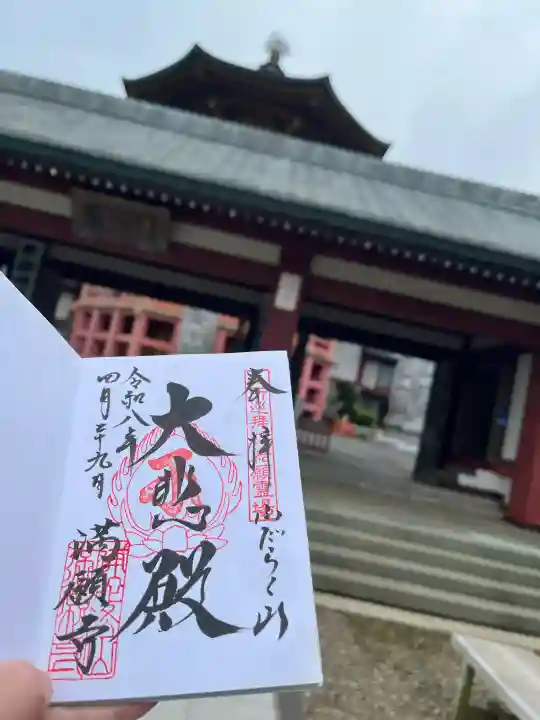 奉拝 ふだらく山
大悲殿
満願寺
令和八年
四月二十九日